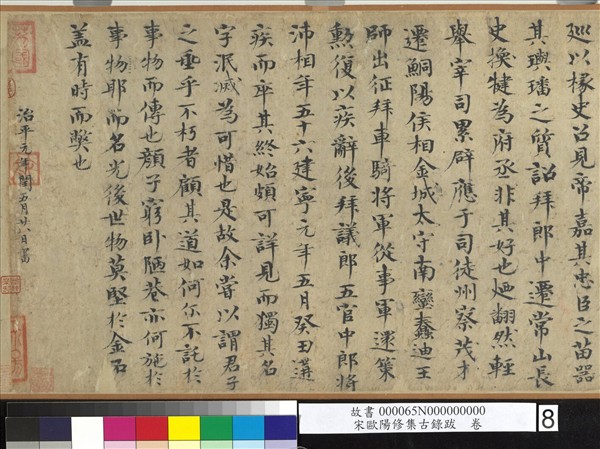 廵以掾史召見帝嘉其忠臣之苗器
其璵璠之質詔拜郎中遷常山長
史換犍為府丞非其好也廼翻然輕
舉宰司累辟應于司徒州察茂才
遷鮦陽侯相金城太守南蠻蠢迪王
師出征拜車騎將軍從事軍還策
勲復以疾辭後拜議郎五官中郎將
沛相年五十六建寧元年五月癸丑遘
疾而卒其終始頗可詳見而獨其名
字泯滅為可惜也是故余嘗以謂君子
之垂乎不朽者顧其道如何尓不託於
事物而傳也顔子窮卧陋巷亦何施於
事物耶而名光後世物莫堅於金石
盖有時而獘也
治平元年閏五月廿八日書
故書 000065N000000000
宋歐陽修集古錄跋 卷
8